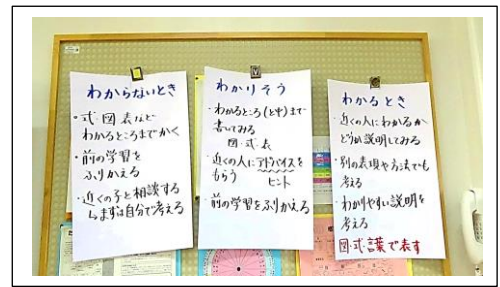 わからないとき
・式・図・表など
わかるところまでかく
・前の学習を
ふりかえる
・近くの子と相談する
↳まずは自分で考える
わかりそう
・わかるところ(とき)まで
書いてみる
図・式・表
・近くの人にアドバイスを
もらう ヒント
・前の学習をふりかえる
わかるとき
・近くの人にわかるか
どうか説明してみる
・別の表現や方法でも
考える
・わかりやすい説明を
考える
図・式・言葉で表す